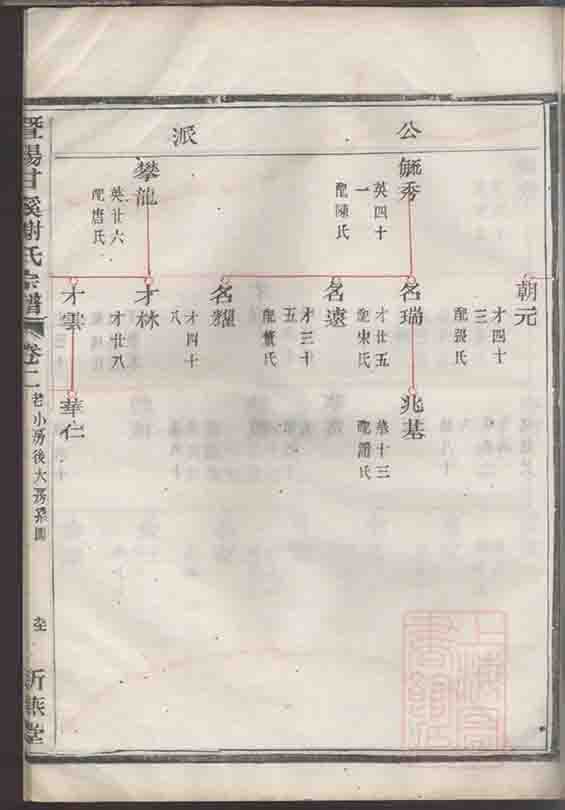 公派
毓秀
英四十
一
配陳氏
攀龍
英廿六
配唐氏
朝元
才四十
三
配張氏
名瑞
才廿五
配宋氏
名遠
才三十
五
配黃氏
名耀
才四十
八
才林
才廿八
才雲
兆基
華十三
配潘氏
華仁
暨陽甘溪謝氏宗譜
卷二
老小房後大房系圖